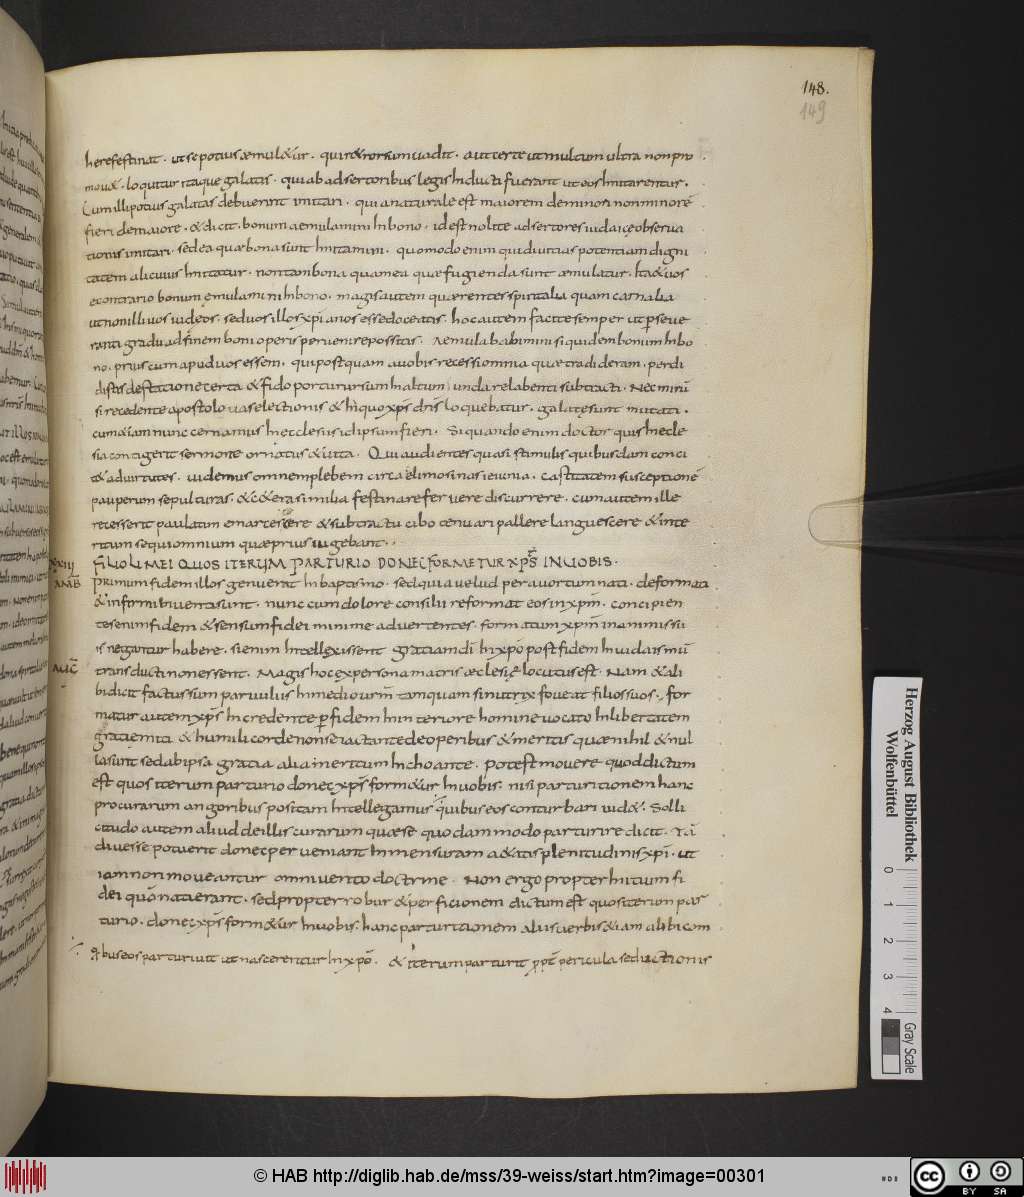 148.
149
herefestinat · ut se potius æmuletur · qui retrorsum uadit · aut certe ut multum ultra non pro
mouet · loquitur itaque galatas · qui ab adsertoribus legis inducti fuerant ut eos imitarentur ·
Cum illi potius galatas debuerint imitari · qui a naturale est maiorem de minori non minorē
fieri de maiore · & dicit · bonum aemulamini in bono · id est nolite adsertores iudaicę obserua
tionis imitari · sed ea quæ bona sunt imitamini · quomodo enim qui diuitias potentiam digni
tatem alicuius imitatur · non tam bona quam ea quæ fugienda sunt æmulatur · Ita & uos
econtrario bonum ęmulamini in bono · magis autem quærentes spiritalia quam carnalia
ut non illi uos iudeos · sed uos illos xp̄ianos esse doceatis · hoc autem facite semper ut perseue
ranti gradu ad finem boni operis peruenire possitis · Aemulabamini siquidem bonum in bo
no · prius cum apud uos essem · qui postquam a uobis recessi omnia quæ tradideram · perdi
distis de statione certa & fido portu rursum in altum unda relabenti subtracti · Nec mirū
si recedente apostolo uas electionis & in quo xp̄s dn̄s loquebatur · galatę sunt mutati ·
cum etiam nunc cernamus in ecclesiis id ipsum fieri · Si quando enim doctor quis in ecle
sia contigerit sermone ornatus & uita · Qui audientes quasi stimulis quibusdam conci
tet ad uirtutes · uidemus omnem plebem circa elimosinas ieiunia · castitatem susceptionē
pauperum sepulturas · & cetera similia festinare feruere discurrere · cum autem ille
recesserit paulatim emarcescere & subtractu cibo tenuari pallere languescere & inte
ritum sequi omnium quæ prius uigebant ·
FILIOLI MEI QUOS ITERUM PARTURIO DONEC FORMETUR XP̄S IN UOBIS ·
AMB̄
Primum fidem illos genuerat in baptismo · sed quia uelud per auortum nati · deformati
& infirmi inuenti sunt · nunc cum dolore consilii reformat eos in xp̄m · concipien
tes enim fidem & sensum fidei minime aduertentes · formatum xp̄m in animis su
is negantur habere · si enim intellexissent gratiam dī in xp̄o post fidem in iudaismū
AUC̄
transducti non essent · Magis hoc ex persona matris æclesię locutus est · Nam & ali
bi dicit factus sum paruulus in medio urm̄ tamquam si nutrix foueat filios suos · for
matur autem xp̄s in credente per fidem in interiore homine uocato in libertatem
gratię miti & humili corde non se iactante de operibus & meritis quæ nihil & nul
la sunt sed ab ipsa gratia alia meritum inchoante · potest mouere quod dictum
est quos iterum parturio donec xp̄s formetur in uobis · nisi parturitionem hanc
procurarum angoribus positam intellegamus quibus eos conturbari uidet · Solli
citudo autem aliud de illis curarum quæ se quodammodo parturire dicit · Tā
diu esse poterit donec perueniant in mensuram ætatis plenitudinis xp̄i · ut
iam non moueantur omni uento doctrine · Non ergo propter initium fi
dei quā nati erant · sed propter robur & perficionem dictum est quos iterum par
turio · donec xp̄s formetur in uobis · hanc parturitionem aliis uerbis etiam alibi com
quibus eos parturiuit ut nascerentur in xp̄o · & iterum parturit ppt̄ pericula seductionis
Herzog August Bibliothek
Wolfenbüttel
0 1 2 3 4
Gray Scale
© HAB http://diglib.hab.de/mss/39-weiss/start.htm?image=00301
cc BY SA